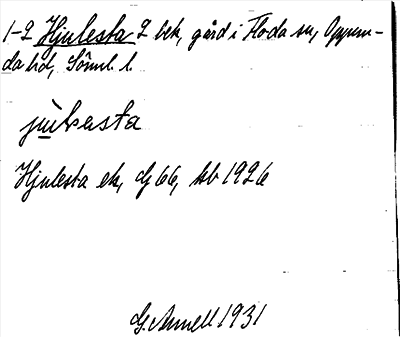 1-2 Hjulesta 2 bek, gård i Floda sn, Oppun-
da hd, Söml. l.
Hjulesta ek, dj 66, hb 1926
G. Annell 1931